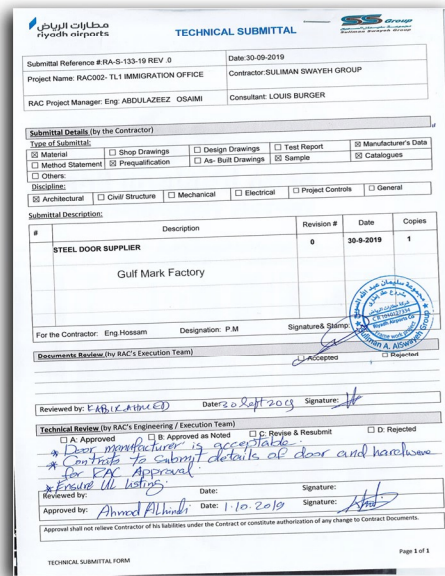 مطارات الرياض
riyadh airports
TECHNICAL SUBMITTAL
SS Group
Suliman Swayeh Group
Submittal Reference #:RA-S-133-19 REV .0
Date:30-09-2019
Project Name: RAC002- TL1 IMMIGRATION OFFICE
Contractor:SULIMAN SWAYEH GROUP
RAC Project Manager: Eng: ABDULAZEEZ OSAIMI
Consultant: LOUIS BURGER
Submittal Details (by the Contractor)
Type of Submittal:
☒ Material ☐ Shop Drawings ☐ Design Drawings ☐ Test Report ☒ Manufacturer's Data
☐ Method Statement ☒ Prequalification ☐ As- Built Drawings ☒ Sample ☒ Catalogues
☐ Others:
Discipline:
☒ Architectural ☐ Civil/ Structure ☐ Mechanical ☐ Electrical ☐ Project Controls ☐ General
Submittal Description:
# Description Revision # Date Copies
STEEL DOOR SUPPLIER 0 30-9-2019 1
Gulf Mark Factory
Suliman A. AlSwayeh Group
For the Contractor: Eng.Hossam Designation: P.M Signature& Stamp:
Documents Review (by RAC's Execution Team)
☐ Accepted ☐ Rejected
Reviewed by: KABIR AHMED Date: 30 Sept 2019 Signature:
Technical Review (by RAC's Engineering / Execution Team)
☐ A: Approved ☐ B: Approved as Noted ☐ C: Revise & Resubmit ☐ D: Rejected
* Door manufacturer is acceptable.
* Contrator to submit details of door and hardware
for RAC Approval.
* Ensure UL listing.
Reviewed by: Date: Signature:
Approved by: Ahmad Alhindi Date: 1.10.2019 Signature:
Approval shall not relieve Contractor of his liabilities under the Contract or constitute authorization of any change to Contract Documents.
TECHNICAL SUBMITTAL FORM
Page 1 of 1